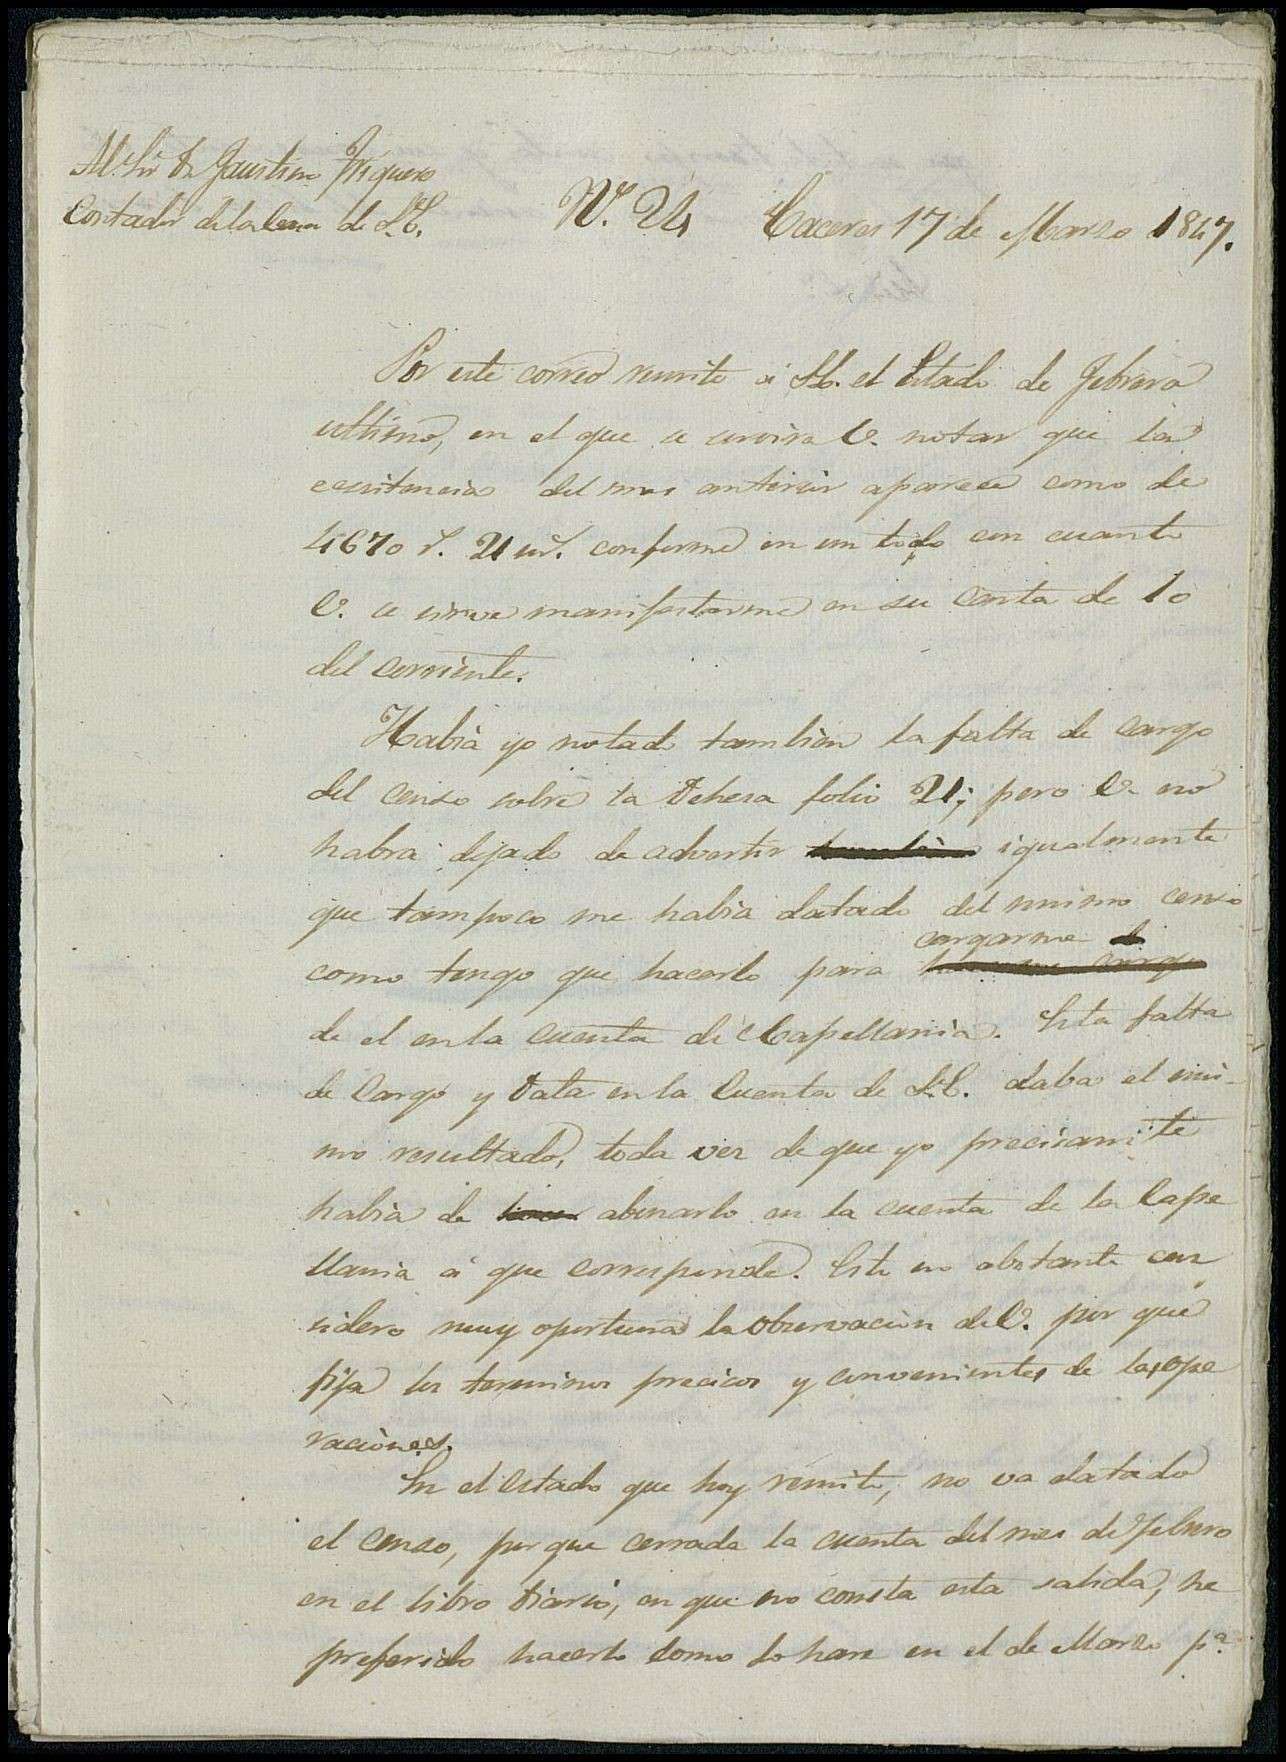 Al Sr Dn Faustino Triguero
Contador de la Casa de S.E.
N.º 24 Caceres 17 de Marzo 1847.
Por este correo remito á M. el Estado de Febrero
ultimo, en el que se servira V. notar que la
ecsistencia del mes anterior aparece como de
4670 r. 21 mrs. conforme en un todo con cuanto
V. se sirve manifestarme en su carta de 10
del corriente.
Habia yo notado tambien la falta de cargo
del censo sobre la Dehesa folio 21; pero V. no
habra dejado de advertir tambien igualmente
que tampoco me habia datado del mismo censo
cargarme
como tengo que hacerlo para hacerme cargo
de el en la cuenta de Capellania. Esta falta
de Cargo y Data en la Cuenta de S.E. daba el mis-
mo resultado, toda vez de que yo precisamte
habia de abonarlo en la cuenta de la Cape
llania á que corresponde. Esto no obstante con
sidero muy oportuna la observacion de V. por que
fija los terminos precisos y convenientes de las ope
raciones.
En el estado que hoy remito, no va datado
el censo, por que cerrada la cuenta del mes de Febrero
en el libro Diario, en que no consta esta salida, he
preferido hacerlo como lo hare en el de Marzo pa.